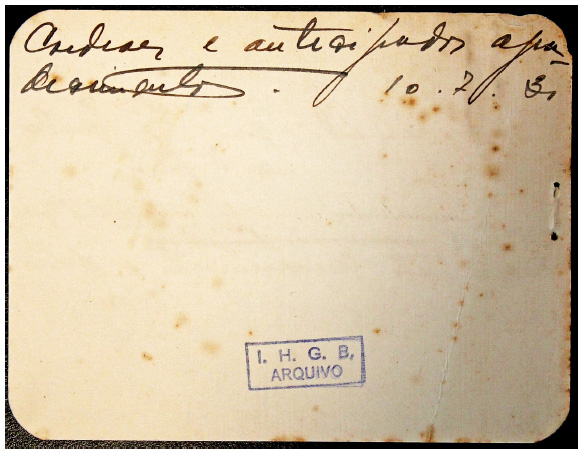 Cordiaes e antecipados agra-
decimentos. 10.7.31
I. H. G. B,
ARQUIVO